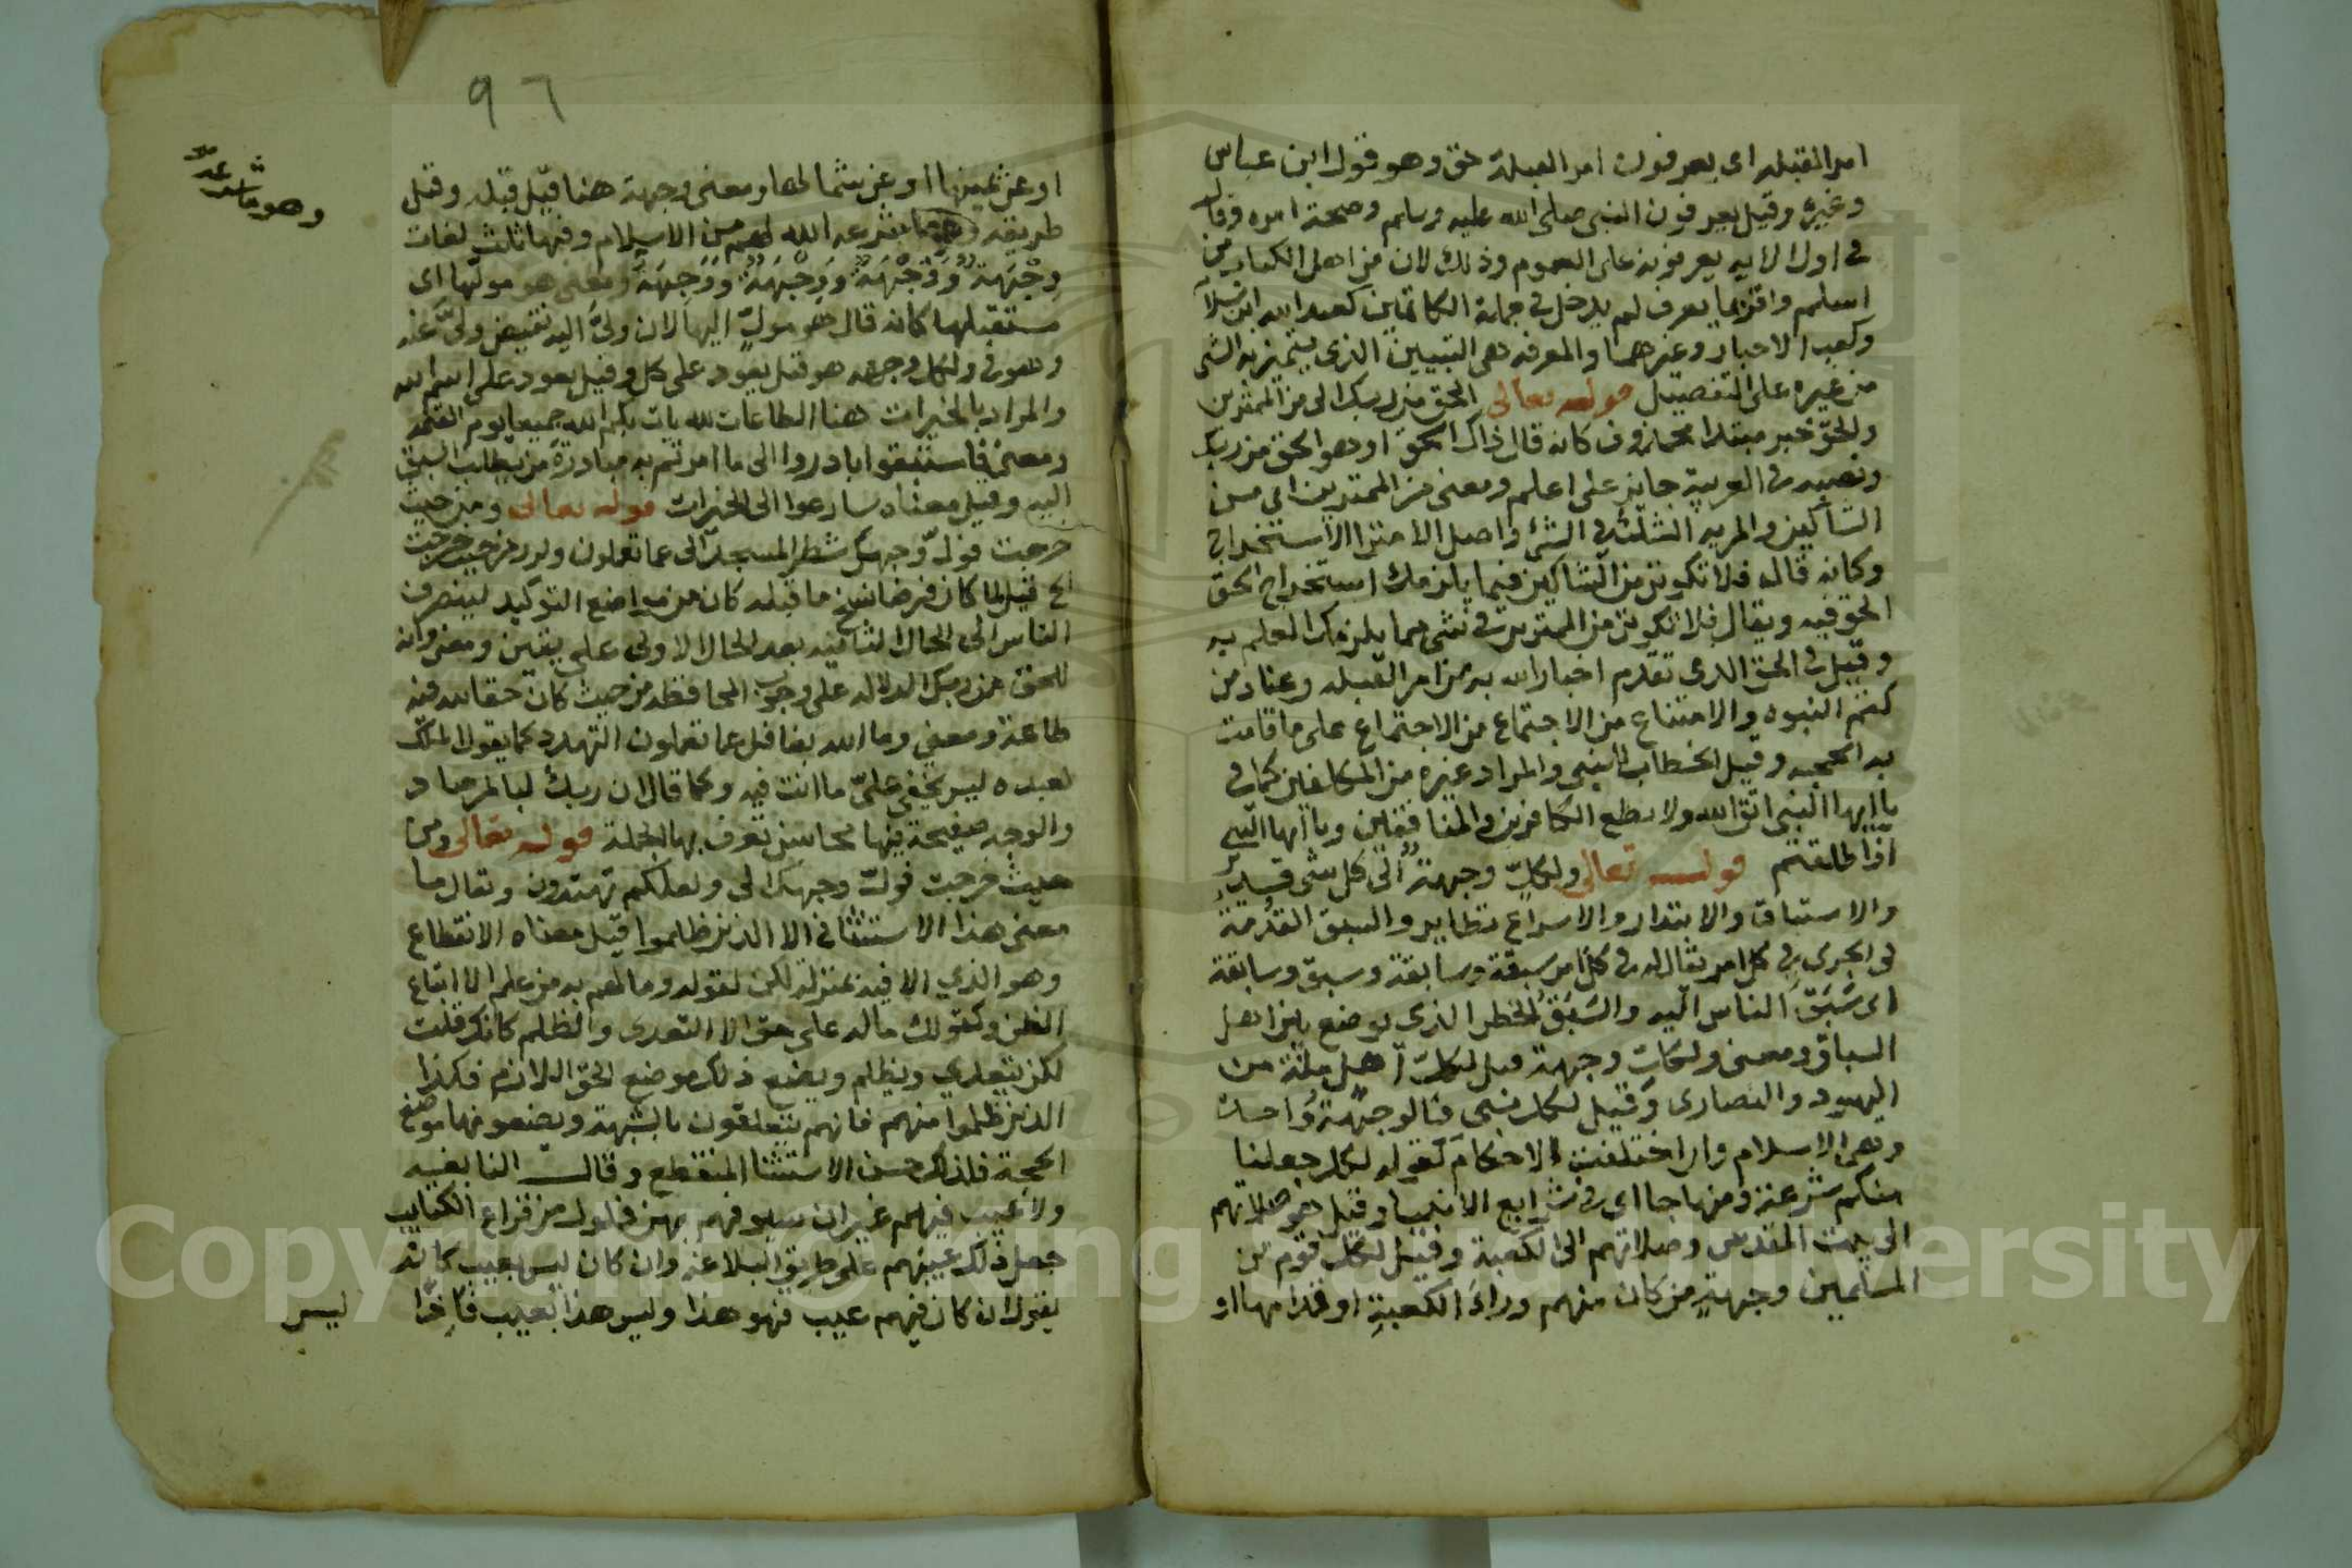 امر القبله اى يعرفون امر القبلة حق وهو قول ابن عباس
وغيره وقيل يعرفون النبى صلى الله عليه وسلم وصحة امره وقال
فى اول الايه يعرفونه على العموم وذلك لان من اهل الكتاب من
اسلم واقر بما يعرف لم يدخل فى جملة الكاتمين كعبد الله ابن سلام
وكعب الاحبار وغيرهما والمعرفه هى التبيين الذى يتميز به الشى
من غيره على التفصيل قوله تعالى الحق من ربك الى من الممترين
والحق خبر مبتدا محذوف كانه قال ذاك الحق او هو الحق من ربك
ونصبه فى العربية جايز على اعلم ومعنى من الممترين اى من
الشاكين والمريه الشك فى الشئ واصل الامترا الاستخراج
وكانه قال فلا تكونن من الشاكين فيما يلزمك استخراج الحق
الحق فيه ويقال فلا تكونن من الممترين فى شى مما يلزمك العلم به
وقيل فى الحق الذى تقدم اخبار الله به من امر القبله وعناد من
كتم النبوه والامتناع من الاجتماع من الاجتماع على ما قامت
به الحجه وقيل الخطاب للنبى والمراد غيره من المكلفين كما فى
يا ايها النبى اتق الله ولا تطع الكافرين والمنافقين ويا ايها النبى
اذا طلقتم قوله تعالى ولكل وجهة الى كل شى قدير
والاستباق والابتدار والاسراع نظاير والسبق القدمة
فى الجرى فى كل امر يقال له فى كل امر سبقة وسابقة وسبق وسابقة
اى سبق الناس اليه والسبق الخطر الذى يوضع بين اهل
السباق ومعنى ولكل وجهة قيل لكل اهل ملة من
اليهود والنصارى وقيل لكل نبى فالوجهة واحدة
وهى الاسلام وان اختلفت الاحكام كقوله لكل جعلنا
منكم شرعة ومنهاجا اى فى شرايع الانبيا وقيل هو صلاتهم
الى بيت المقدس وصلاتهم الى الكعبة وقيل لكل قوم من
المسلمين وجهة من كان منهم وراء الكعبة او قدامها او
٩٦
او عن يمينها او عن شمالها ومعنى وجهة هنا قيل قبله وقيل
طريقه وهو ما شرعه الله لهم من الاسلام وفيها ثلث لغات
وهو ما شرعه
وِجْهَة وَوَجْهَة وَجِهَة ومعنى هو موليها اى
مستقبلها كانه قال هو مول اليها لان ولى اليه نقيض ولى عنه
وهو فى ولكل وجهه هو قيل يعود على كل وقيل يعود على اسم الله
والمراد بالخيرات هنا الطاعات لله يات بكم الله جميعا يوم القيمه
ومعنى فاستبقوا بادروا الى ما امرتم به مبادرة من يطلب السبق
اليه وقيل معناه سارعوا الى الخيرات قوله تعالى ومن حيث
خرجت فول وجهك شطر المسجد الى عما تعملون ومن حيث خرجت
قيل لما كان فرضا نسخ ما قبله كان من مواضع التوكيد لينصرف
الناس الى الحال الثانيه بعد الحال الاولى على يقين ومعنى وانه
للحق من ربك الدلاله على وجوب المحافظه من حيث كان حقا لله فيه
طاعة ومعنى وما الله بغافل عما تعملون التهدد كما يقول الملك
لعبده ليس يخفى على ما انت فيه وكما قال ان ربك لبالمرصاد
والوجه صفيحة فيها محاسن تعرف بها الجملة قوله تعالى ومن
حيث خرجت فول وجهك الى ولعلكم تهتدون ويقال ما
معنى هذا الاستثنا فى الا الذين ظلموا قيل معناه الانقطاع
وهو الذى الا فيه بمنزلة لكن كقوله وما لهم به من علم الا اتباع
الظن وكقولك ماله على حق الا التعدى والظلم كانك قلت
لكن يتعدى ويظلم ويضع ذلك موضع الحق اللازم فكذا
الذين ظلموا منهم فانهم يتعلقون بالشبهة ويضعونها موضع
الحجة فلذلك حسن الاستثنا المنقطع وقال النابغه
ولا عيب فيهم غير ان سيوفهم بهن فلول من قراع الكتايب
جعل ذلك عيبهم على طريق البلاغه وان كان ليس بعيب كانه
يقول ان كان فيهم عيب فهو هذا وليس هذا بعيب فاذا
ليس
Copyright © King Saud University